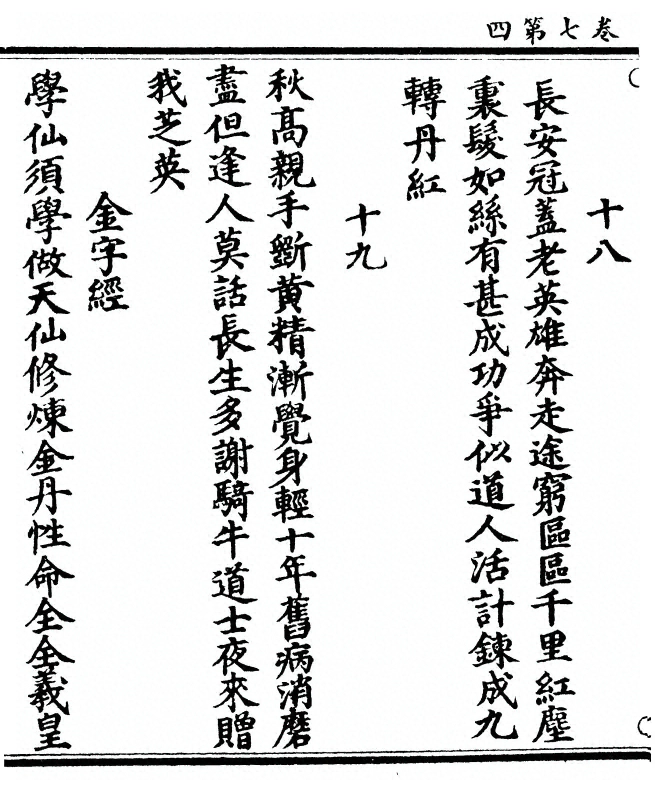 卷七第四
十八
長安冠蓋老英雄奔走途窮區區千里紅塵
裏髮如絲有甚成功爭似道人活計鍊成九
轉丹紅
十九
秋高親手斲黃精漸覺身輕十年舊病消磨
盡但逢人莫話長生多謝騎牛道士夜來贈
我芝英
金字經
學仙須學做天仙修煉金丹性命全全義皇